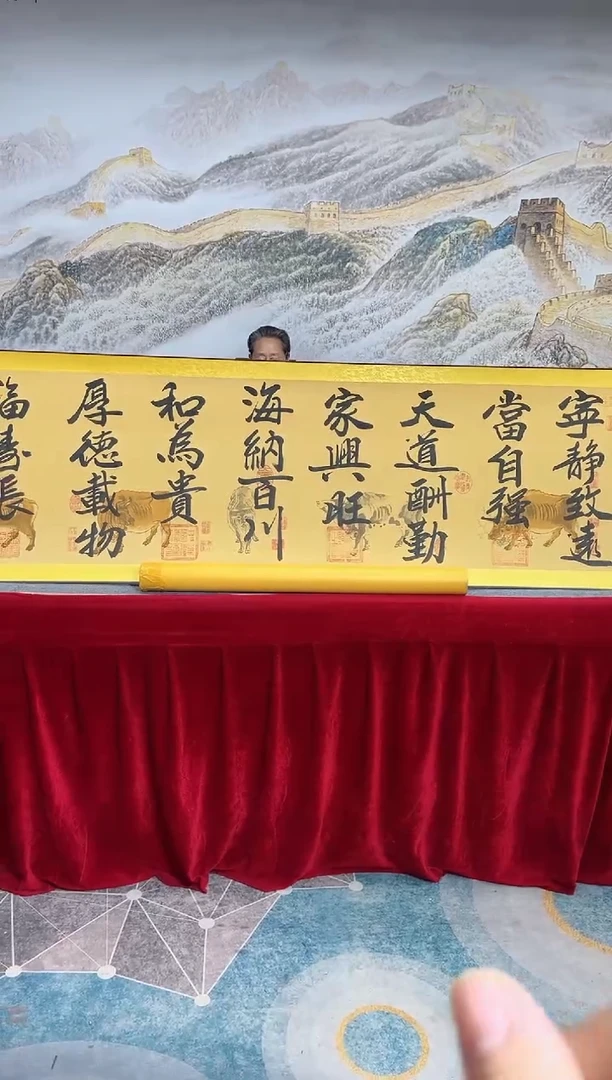 寧靜致遠
當自强
天道酬勤
家興旺
海納百川
和為貴
厚德載物
福壽長